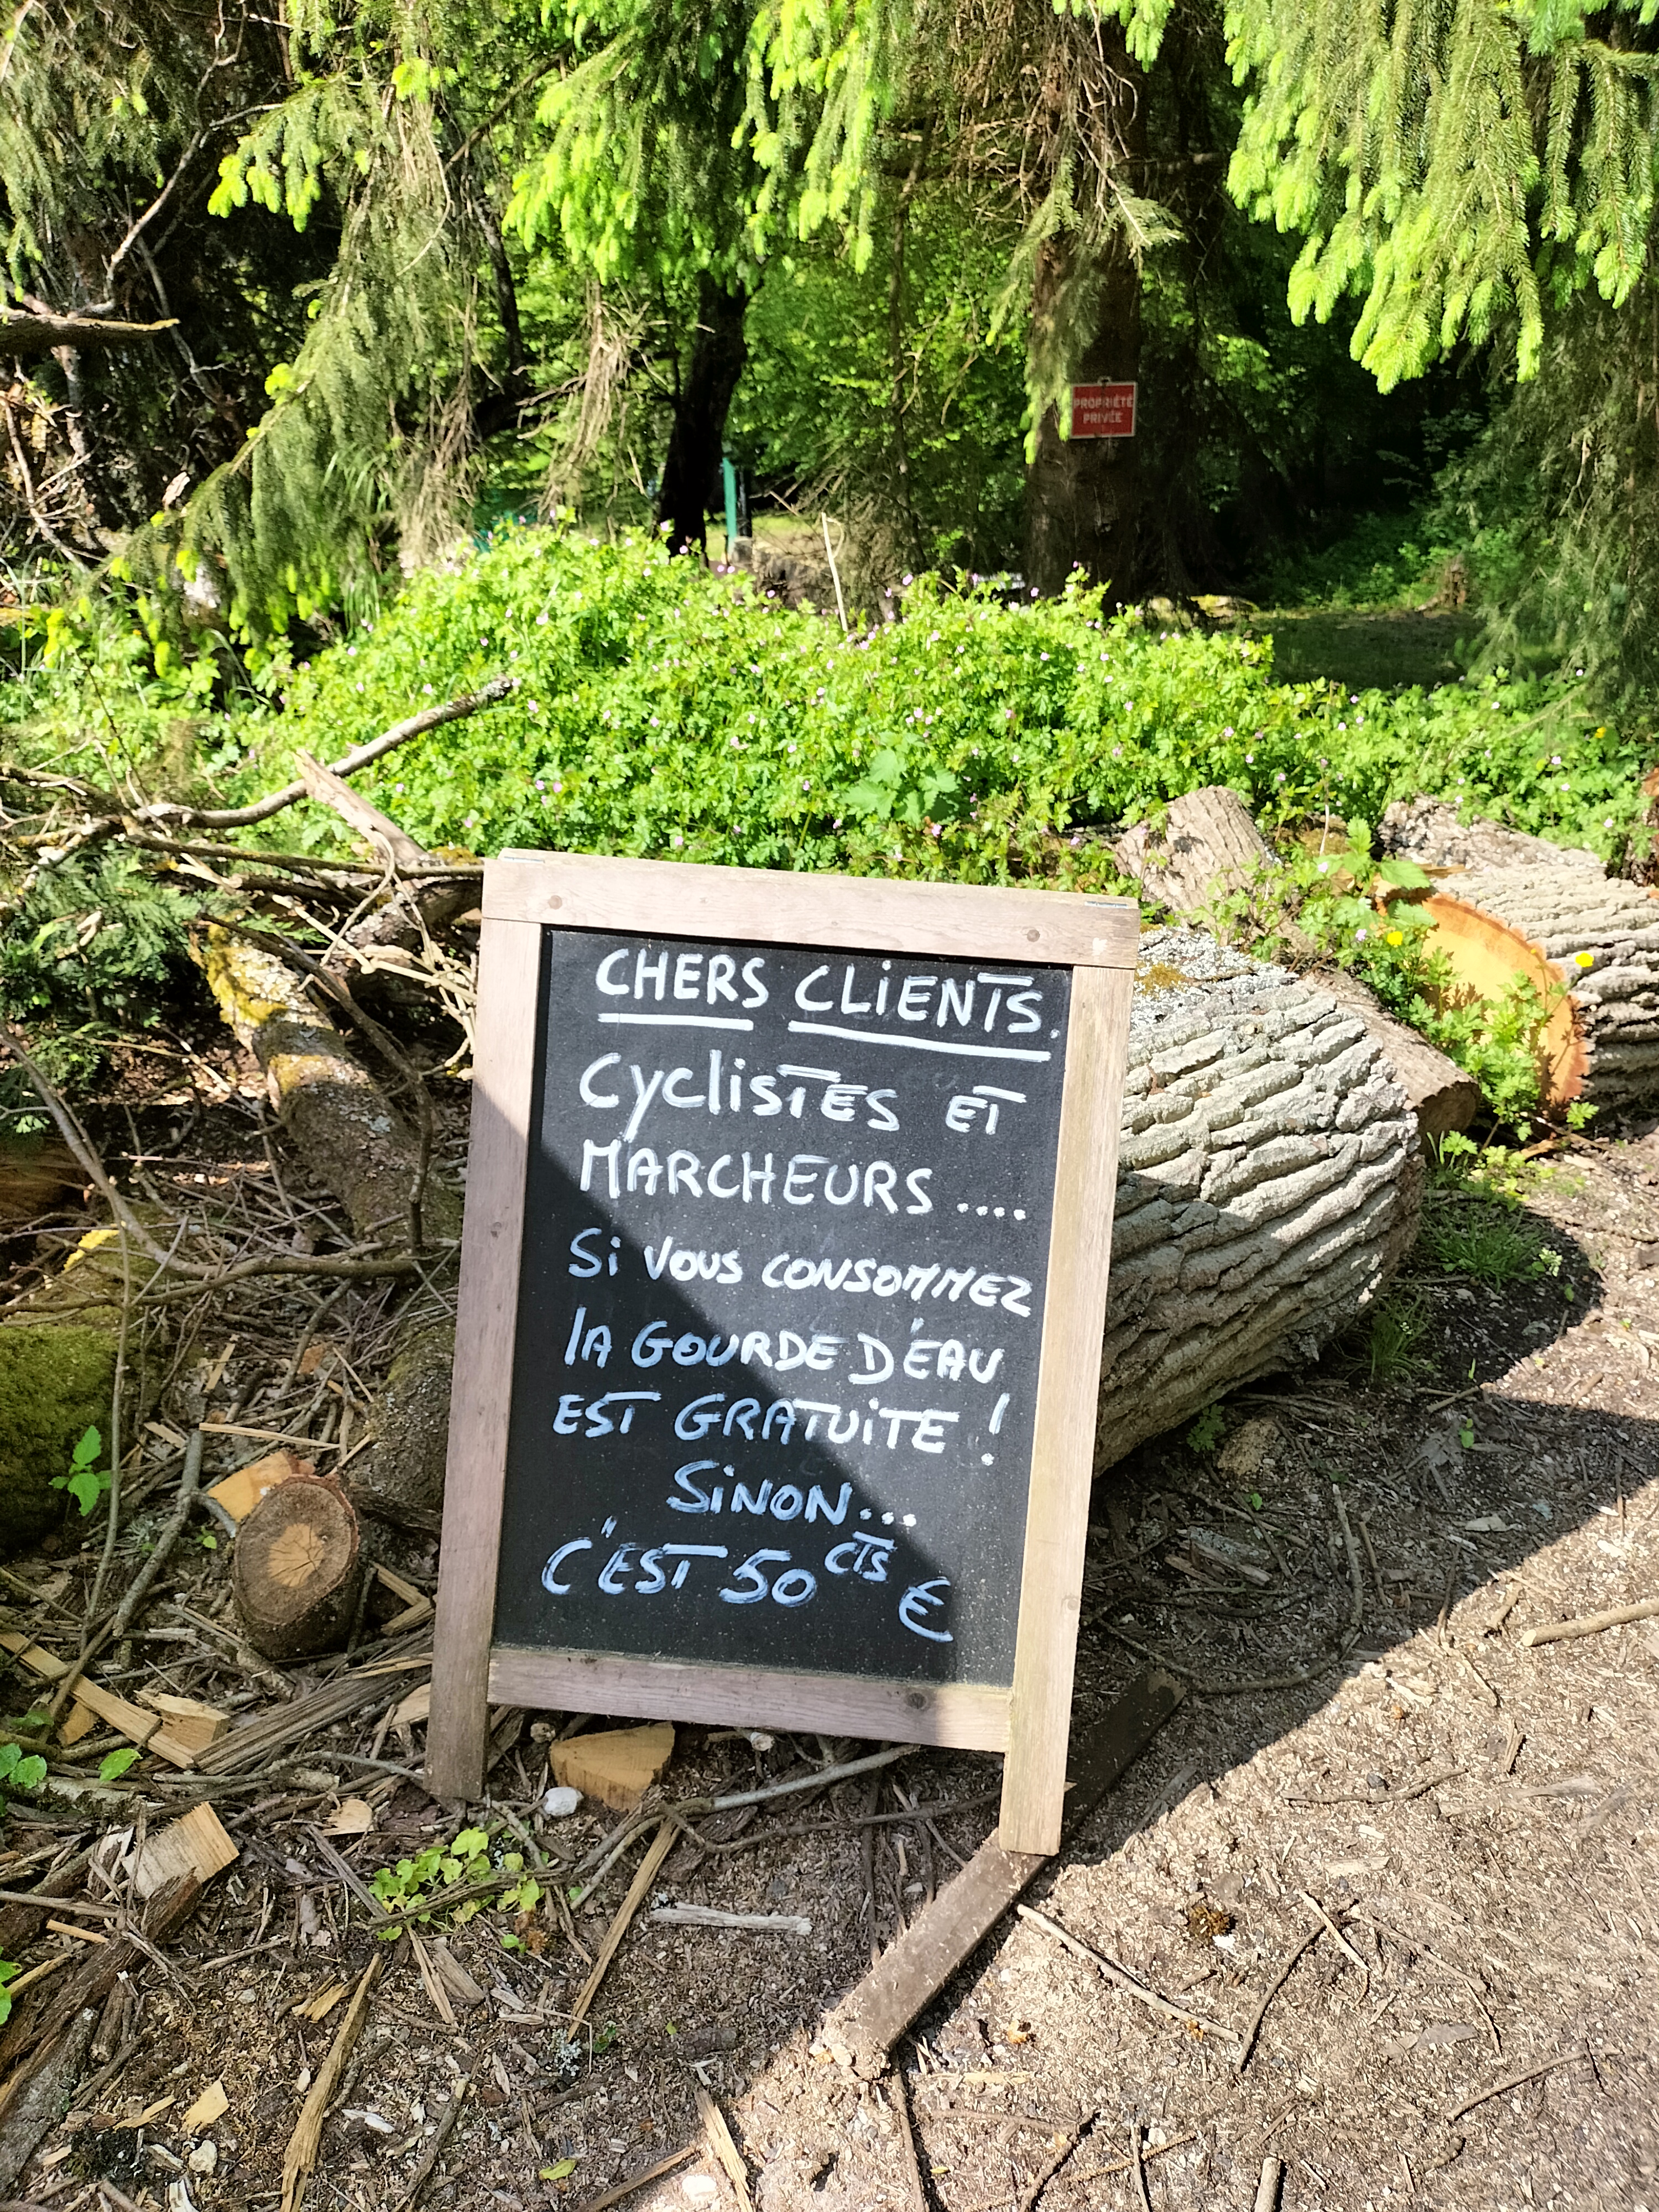 PROPRIÉTÉ
PRIVÉE
CHERS CLIENTS.
CyclisTES ET
MARCHEURS ....
Si Vous CONSOMMEZ
lA GOURDE D'ÉAU
EST GRATUiTE !
SiNON...
C'EST 50 CTS €